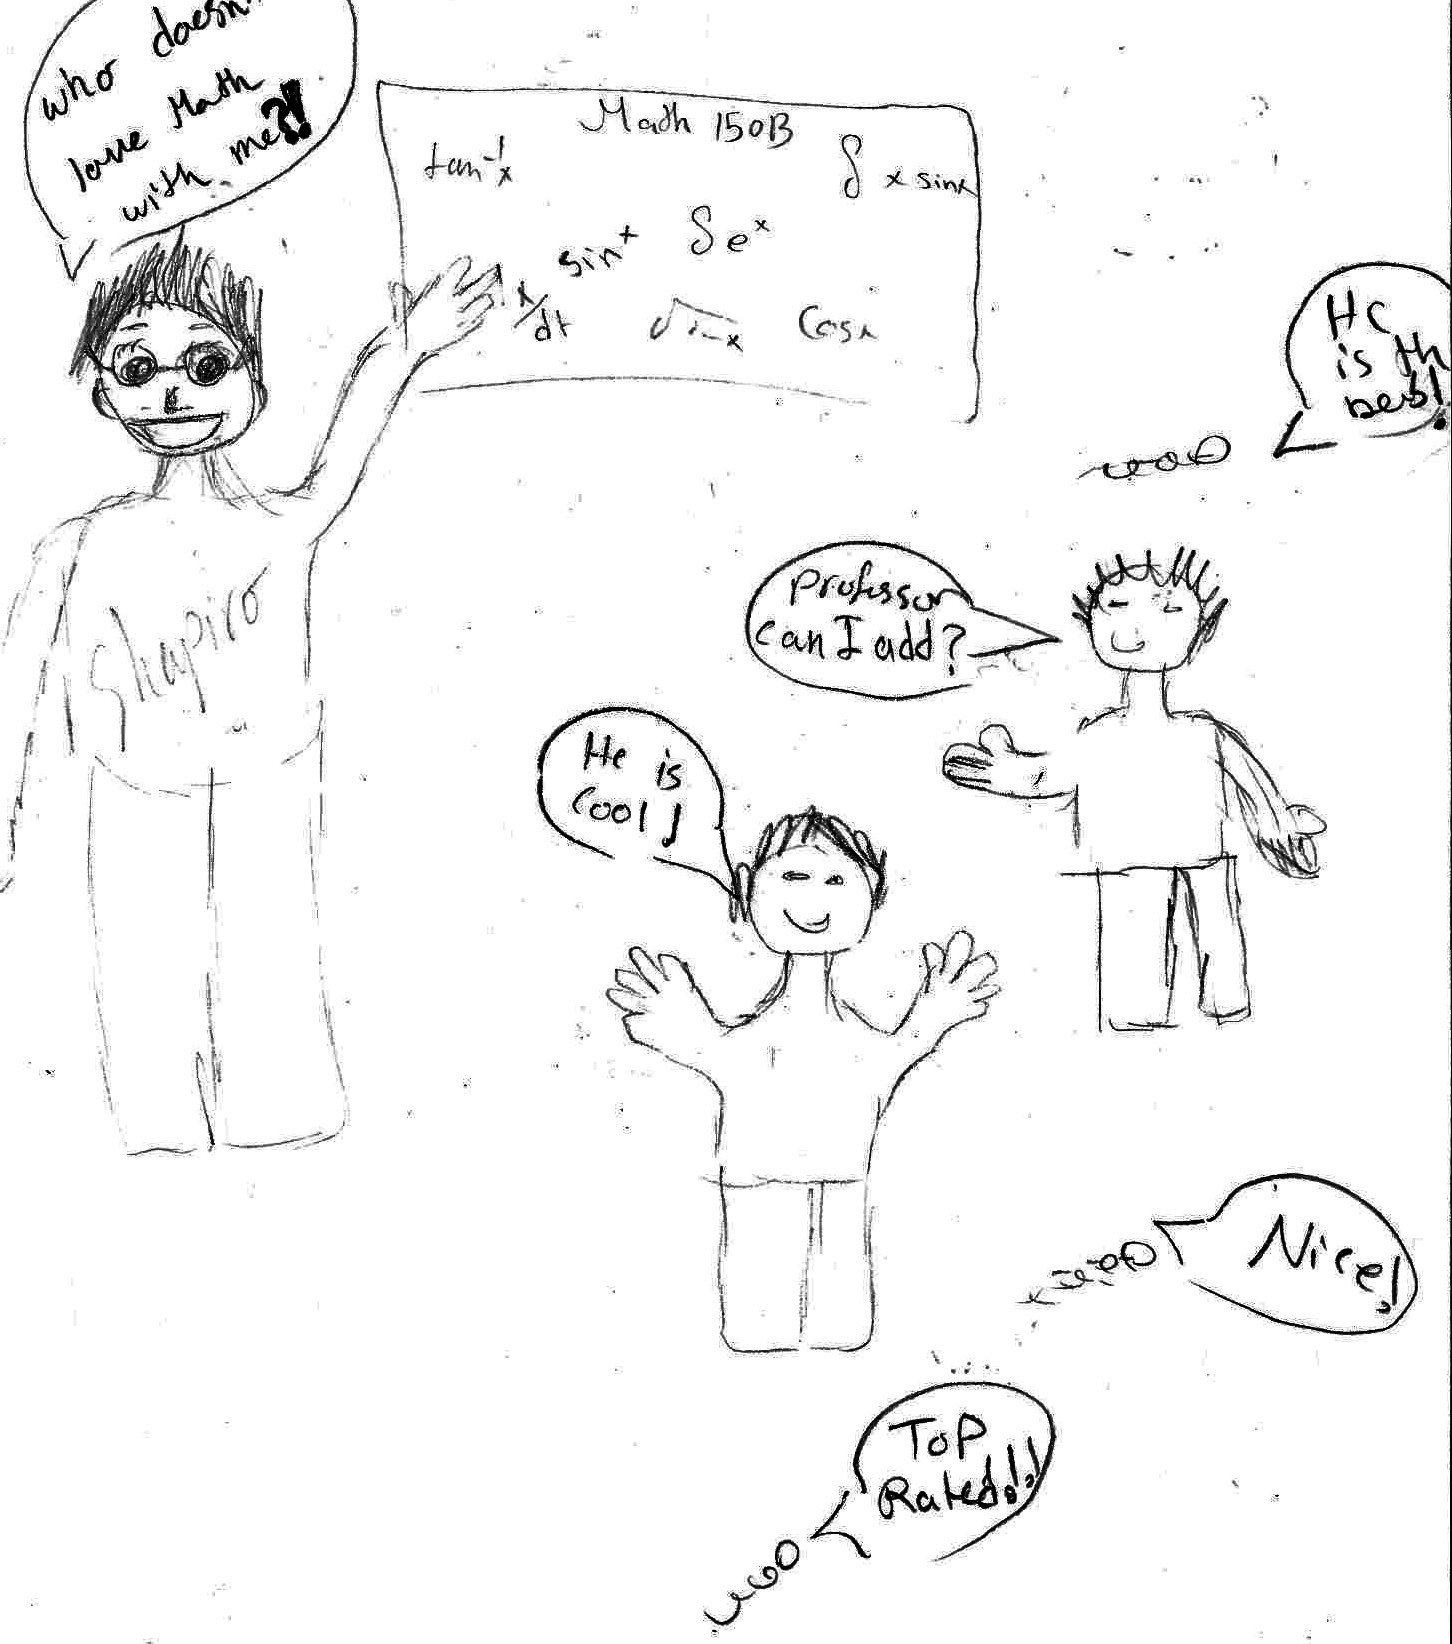 who doesn
love Math
with me?!
Math 150B
tan⁻¹x
∫ x sinx
sin⁺
∫ e^x
x/dt
Cosx
Shapiro
HC
is th
best!
Professor
can I add?
He is
Cool!
Nice!
ToP
Rated!!